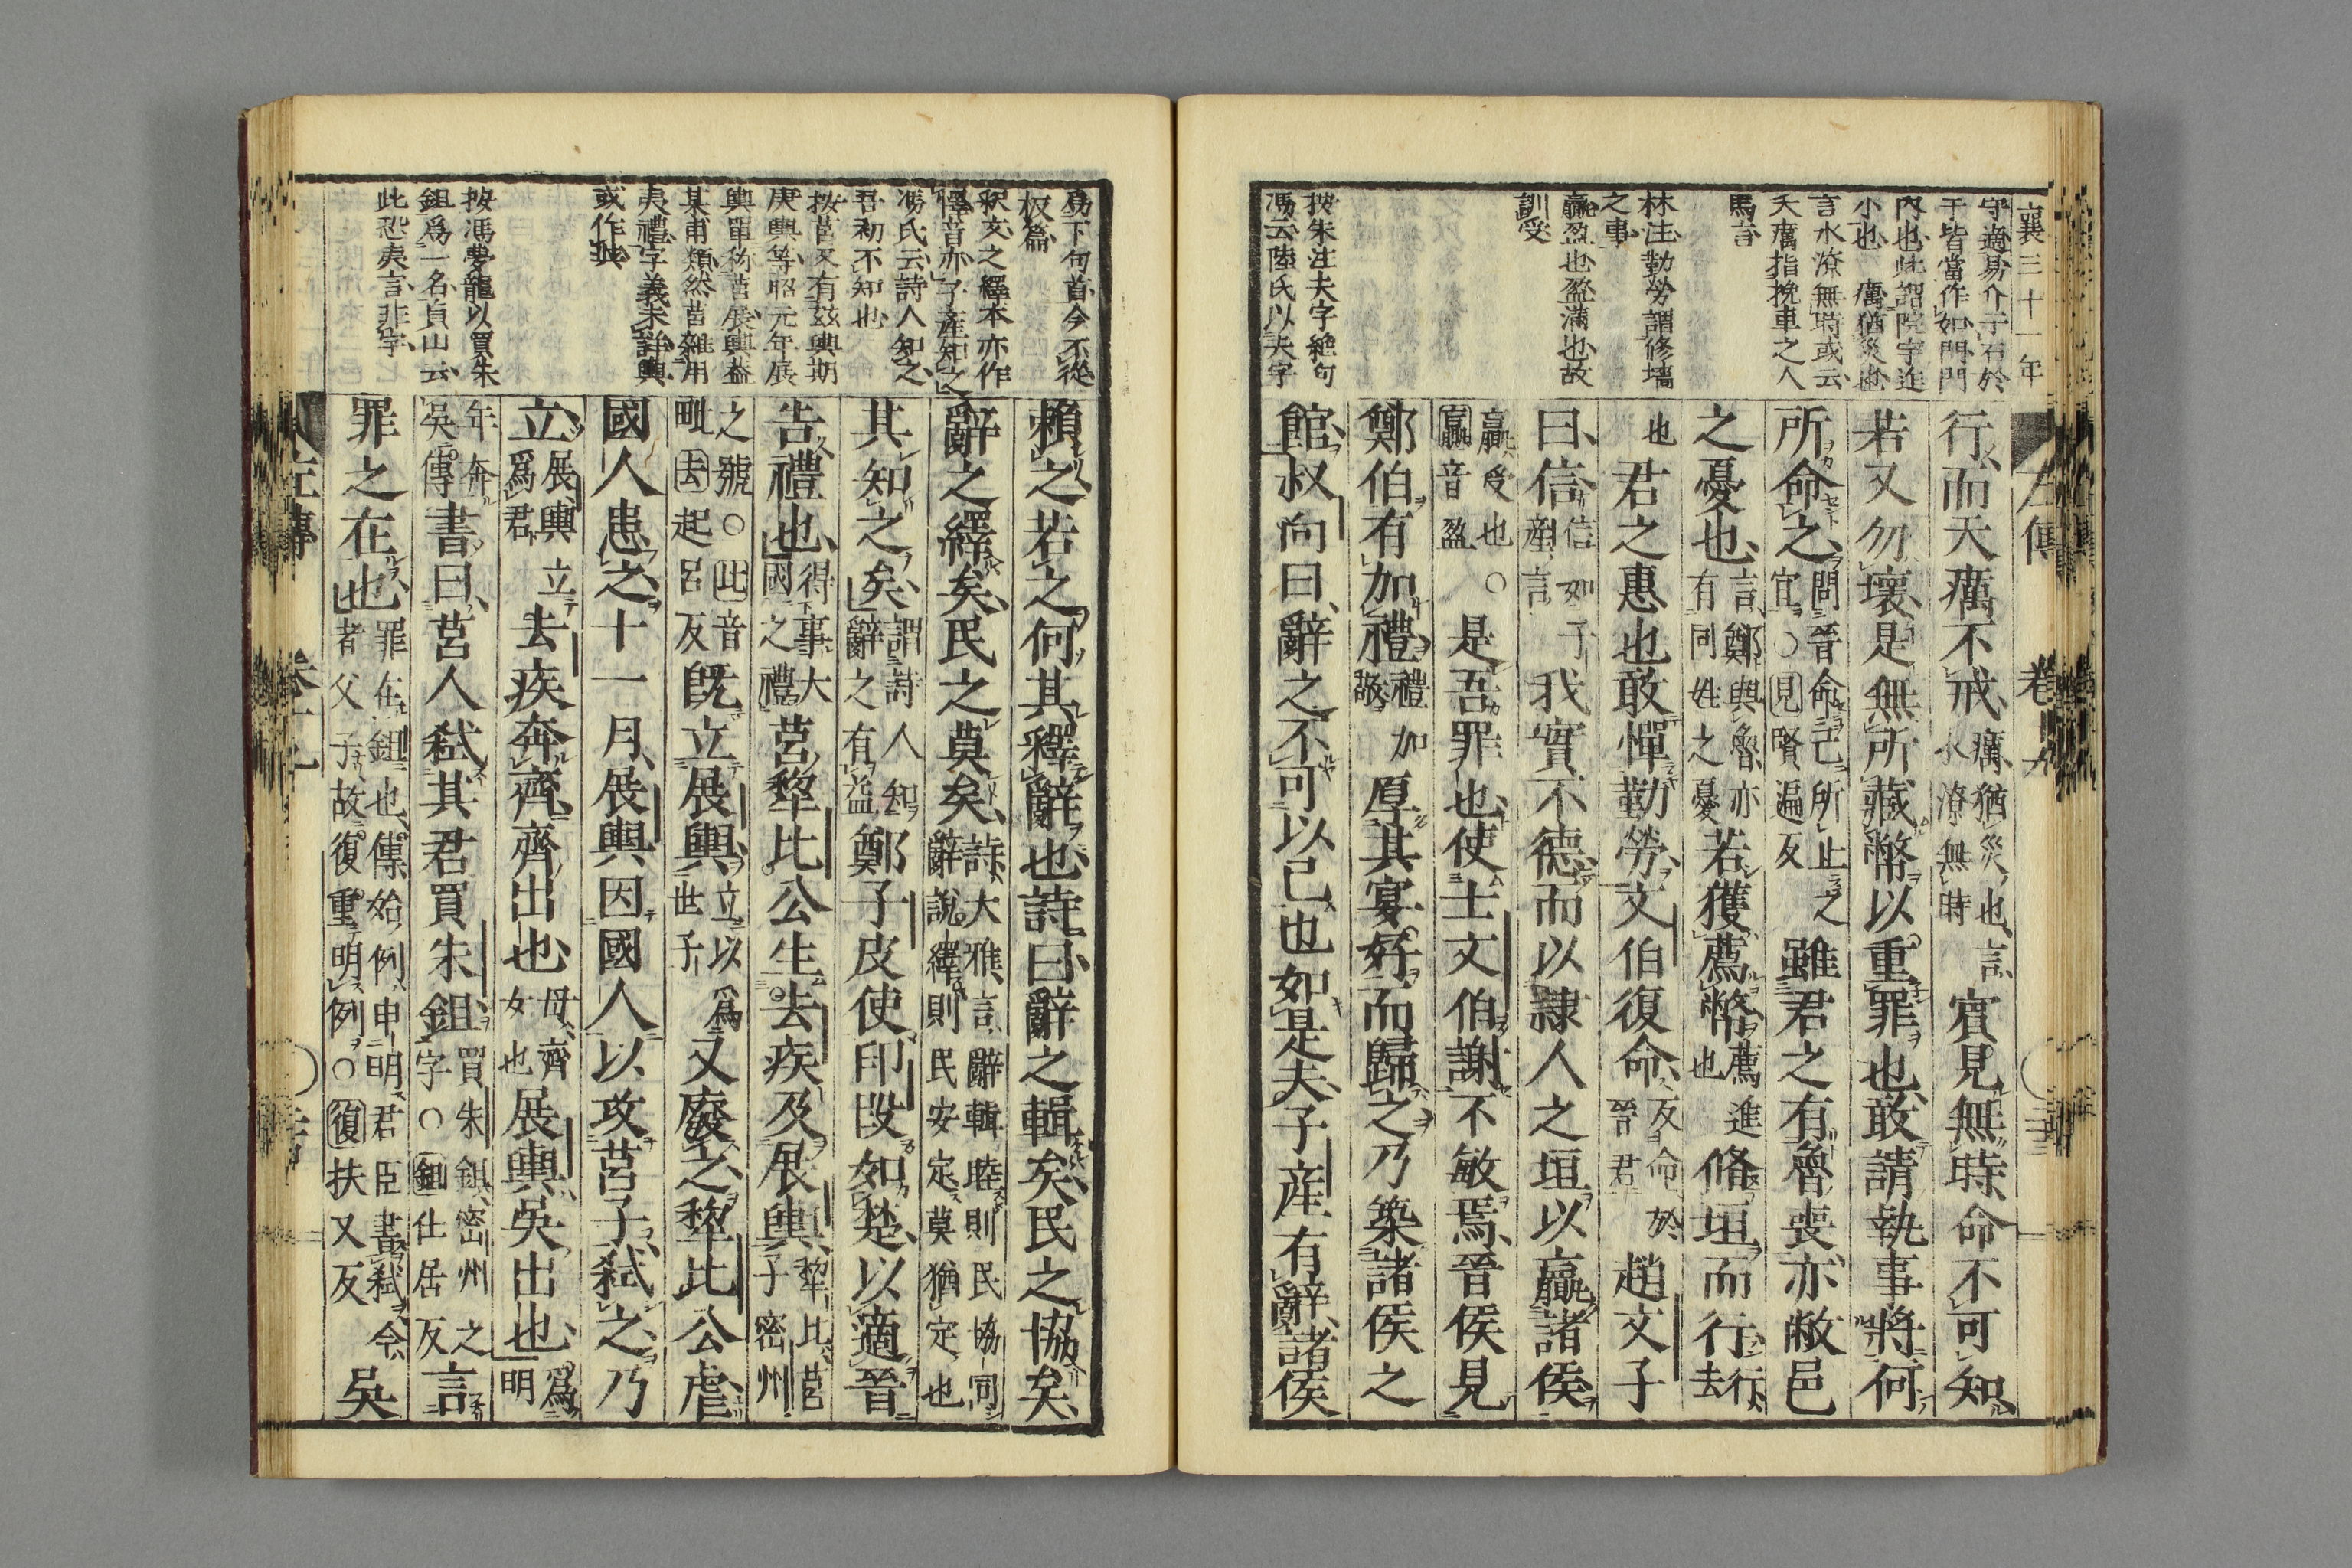 襄三十一年
左傳 卷十九
守適易介于石於
于皆當作如門門
内也此詔院字進
小也 癘猶災也
言水潦無時或云
夭癘指挽車之人
馬言
林注勤勞謂修墻
之事
贏盈也盈滿也故
訓受
按朱注夫字絶句
馮云陸氏以夫字
行而天癘不戒癘猶災也言水潦無時賓見無時命不可知
若又勿壞是無所藏幣以重罪也敢請執事將何
所命之問晉命己所止之宜○見賢遍反雖君之有魯喪亦敝邑
之憂也言鄭與魯亦有同姓之憂若獲薦幣薦進也脩垣而行行去
也君之惠也敢憚勤勞文伯復命反命於晉君趙文子
曰信信如子産言我實不德而以隷人之垣以贏諸侯
贏受也○贏音盈是吾罪也使士文伯謝不敏焉晉侯見
鄭伯有加禮禮加敬厚其宴好而歸之乃築諸侯之
館叔向曰辭之不可以已也如是夫子産有辭諸侯
易下句首今不從
板篇
釈文之繹本亦作
懌音亦子産知之
馮氏云詩人知之
吾初不知也
按莒又有茲輿期
庚輿等昭元年展
輿單称莒展輿蓋
某甫類然莒雜用
夷禮字義未詳輿
或作與
按馮夢龍以買朱
鉏爲一名貞山云
此恐夷言非字
賴之若之何其釋辭也詩曰辭之輯矣民之協矣
辭之繹矣民之莫矣詩大雅言辭輯睦則民協同辭說繹則民安定莫猶定也
其知之矣謂詩人知辭之有益鄭子皮使印段如楚以適晉
告禮也得事大國之禮莒犂比公生去疾及展輿犂比莒子密州
之號○比音毗去起呂反既立展輿立以爲世子又廢之犂比公虐
國人患之十一月展輿因國人以攻莒子弑之乃
立展輿立爲君去疾奔齊齊出也母齊女也展輿吳出也爲明
年奔吳傳書曰莒人弑其君買朱鉏買朱鉏密州之字○鉏仕居反言
罪之在也罪在鉏也傳始例申明君臣書弑今者父子故復重明例○復扶又反吳
左傳 卷十九